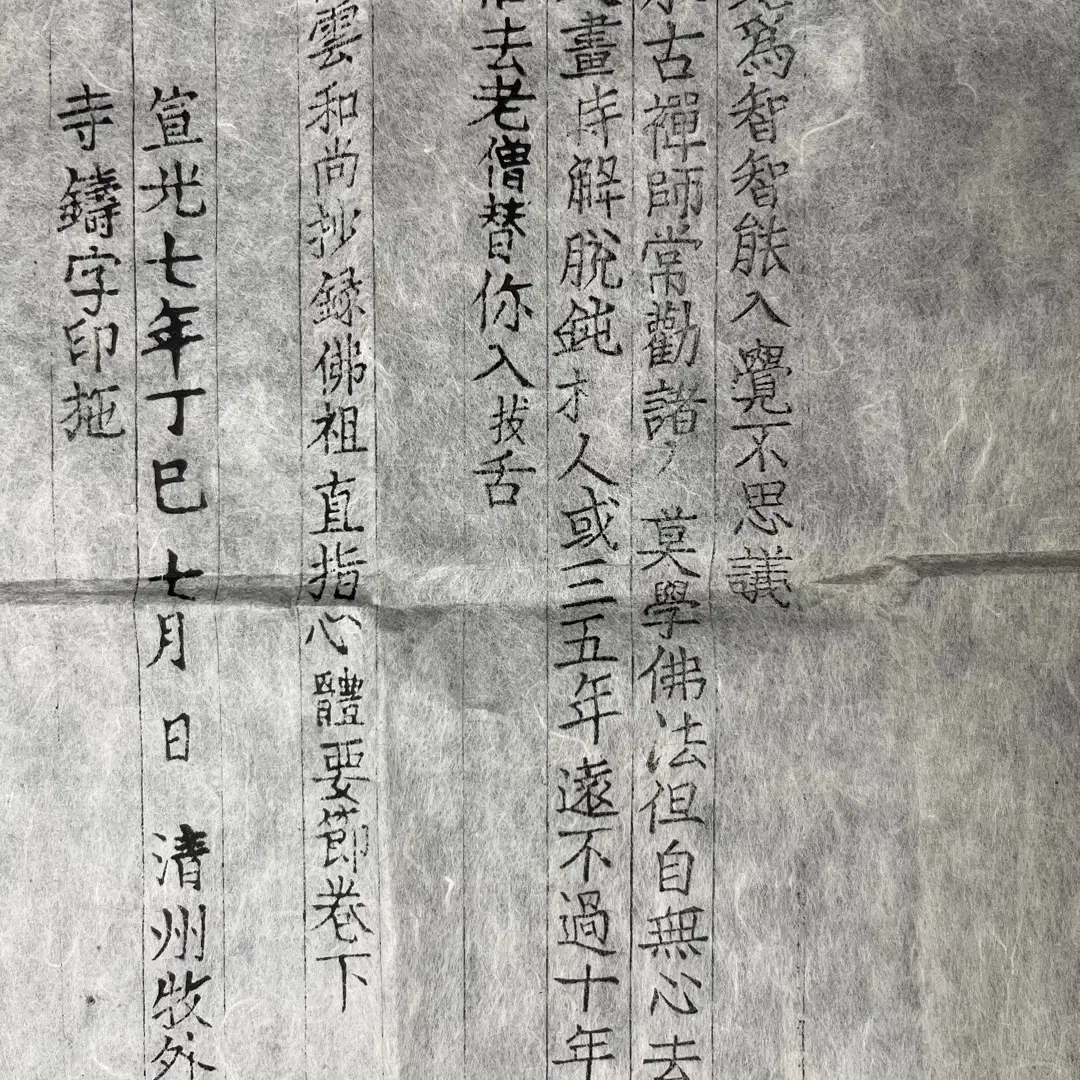 爲智智能入覺不思議
古禪師常勸諸 莫學佛法但自無心去
畫時解脫鈍 人或三五年遠不過十年
去老僧替你入拔舌
雲和尚抄録佛祖直指心體要節卷下
宣光七年丁巳七月 日 清州牧外
寺鑄字印施